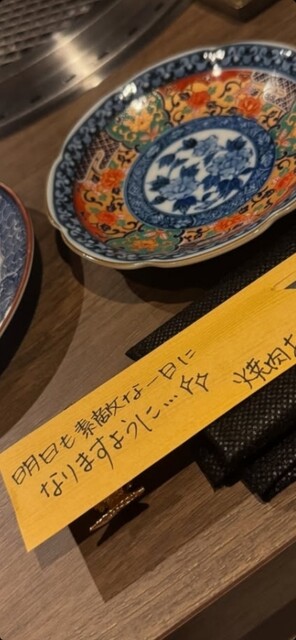 明日も素敵な一日に
なりますように…☆☆
焼肉